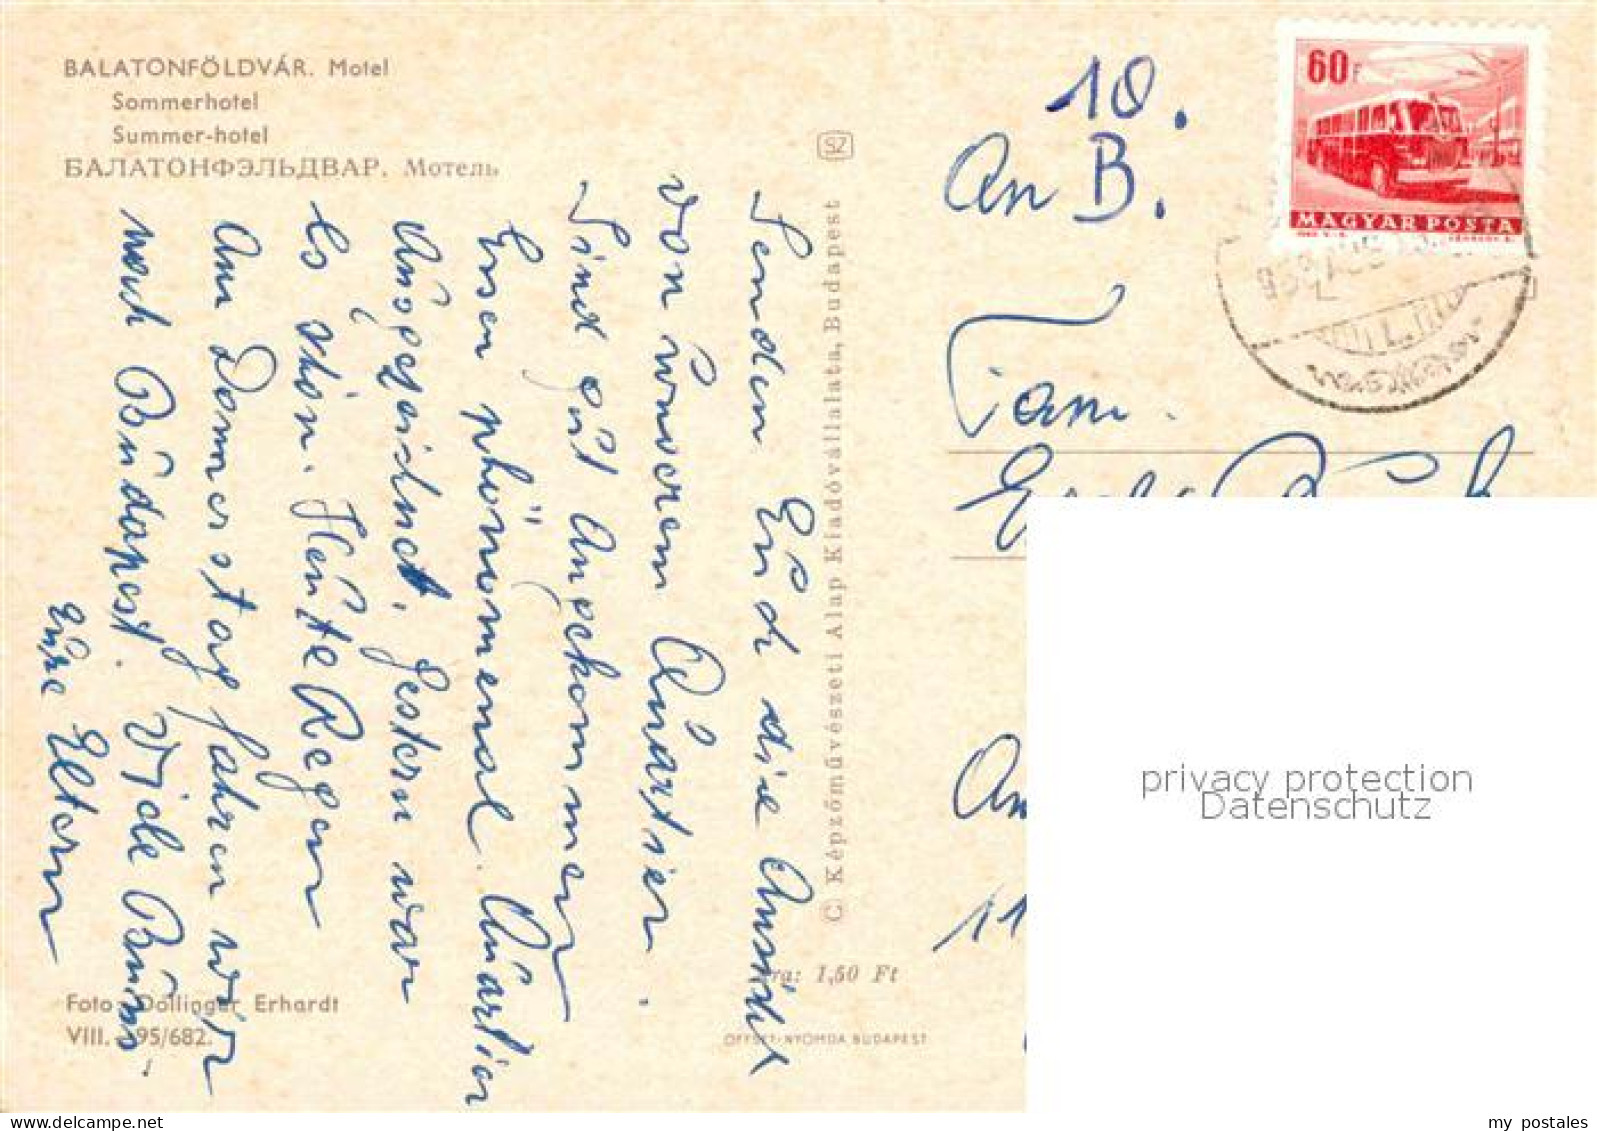 BALATONFÖLDVÁR. Motel
Sommerhotel
Summer-hotel
БАЛАТОНФЭЛЬДВАР. Мотель
SZ
60F
MAGYAR POSTA
10.
An B.
Fam.
An
11
Senden Euch die Ansicht
von unserem Quartier.
Sind gut Angekommen
Essen phönomenal. Quartier
Ausgezeichnet. Gestern war
Es schön. Heute Regen
Am Donnerstag fahren wir
nach Budapest. Viele Bussi
Eure Eltern
© Képzőművészeti Alap Kiadóvállalata, Budapest
Ára: 1,50 Ft
OFFSET-NYOMDA BUDAPEST
Foto: Dollinger Erhardt
VIII. 95/682.
privacy protection
Datenschutz
my postales